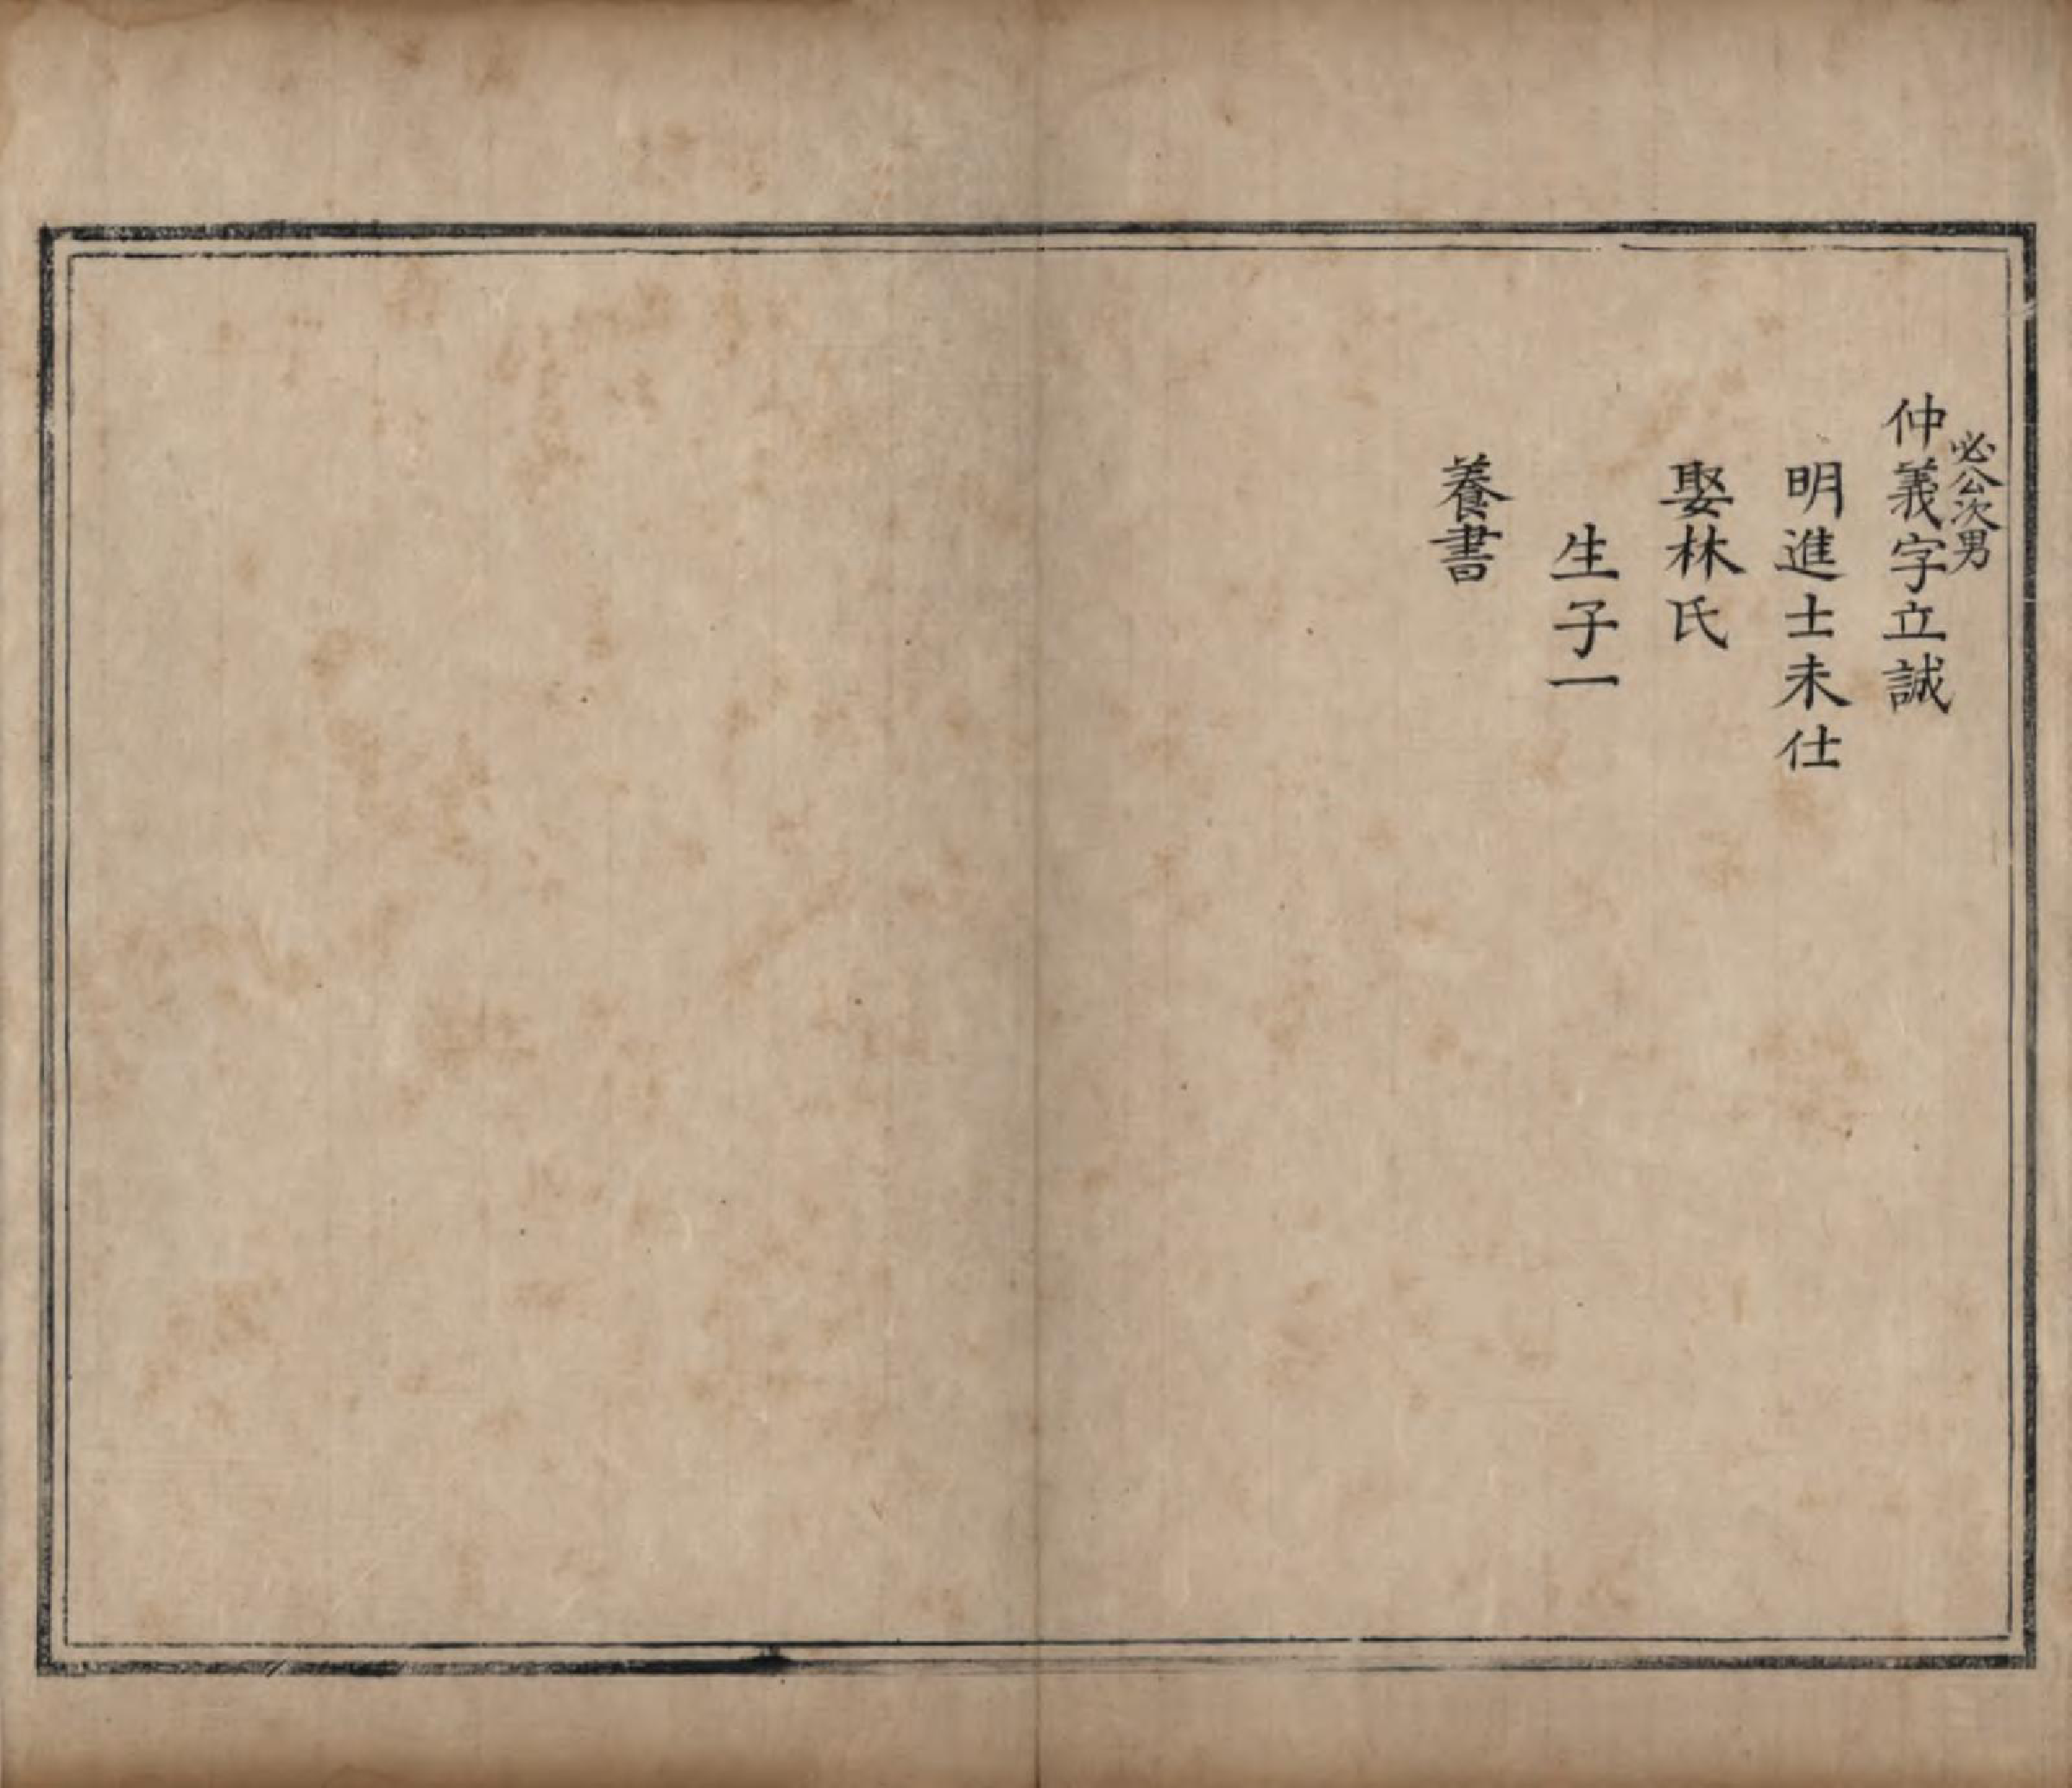 必公次男
仲義字立誠
明進士未仕
娶林氏
生子一
養書